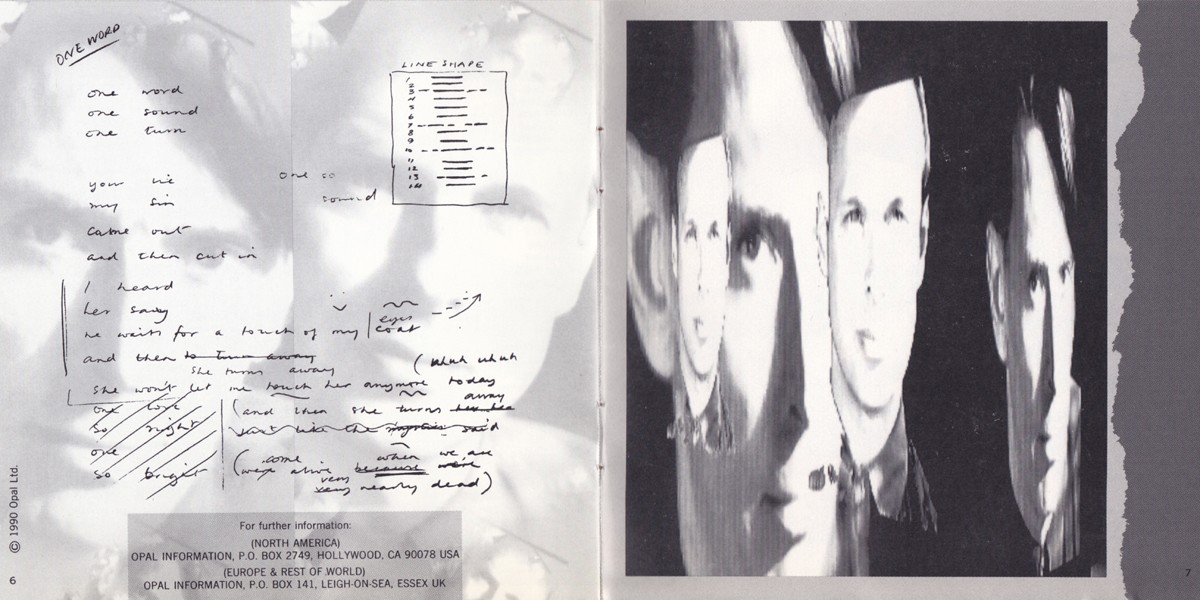 ONE WORD
one word
one sound
one turn
your lie
my sin
came out
and then cut in
one so
sound
LINE SHAPE
1
2
3
4
5
6
7
8
9
10
11
12
13
14
I heard
her say
he waits for a touch of my eyes
coat
and then to turn away
she turns away
(uhuh uhuh
she won't let me touch her anymore today
one love
so right
one
so bright
away
(and then she turns her
just like the mystics said
(come when we are
were alive because we're
very
very nearly dead)
© 1990 Opal Ltd.
6
For further information:
(NORTH AMERICA)
OPAL INFORMATION, P.O. BOX 2749, HOLLYWOOD, CA 90078 USA
(EUROPE & REST OF WORLD)
OPAL INFORMATION, P.O. BOX 141, LEIGH-ON-SEA, ESSEX UK
7